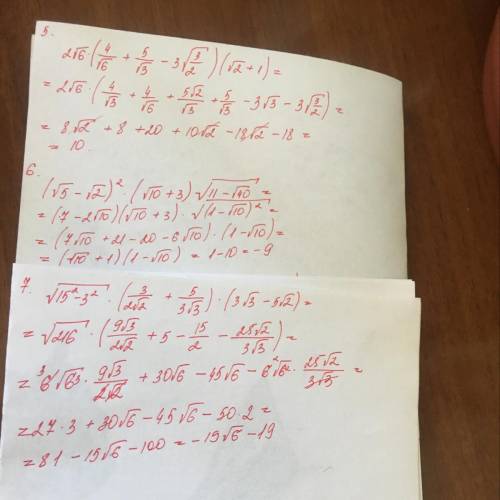 5.
2√6 · (4/√6 + 5/√3 − 3√(3/2)) (√2 + 1) =
= 2√6 · (4/√3 + 4/√6 + 5√2/√3 + 5/√3 − 3√3 − 3√(3/2)) =
= 8√2 + 8 + 20 + 10√2 − 18√2 − 18 =
= 10
6.
(√5 − √2)² · (√10 + 3) √(11 − √40) =
= (7 − 2√10)(√10 + 3) · √(1 − √10)² =
= (7√10 + 21 − 20 − 6√10) · (1 − √10) =
= (√10 + 1)(1 − √10) = 1 − 10 = −9
7. √(15² − 3²) · (3/(2√2) + 5/(3√3)) · (3√3 − 5√2) =
= √216 · (9√3/(2√2) + 5 − 15/2 − 25√2/(3√3)) =
= ³6√6³ · 9√3/(2√2) + 30√6 − 45√6 − 6²√6² · 25√2/(3√3) =
= 27 · 3 + 30√6 − 45√6 − 50 · 2 =
= 81 − 15√6 − 100 = −15√6 − 19